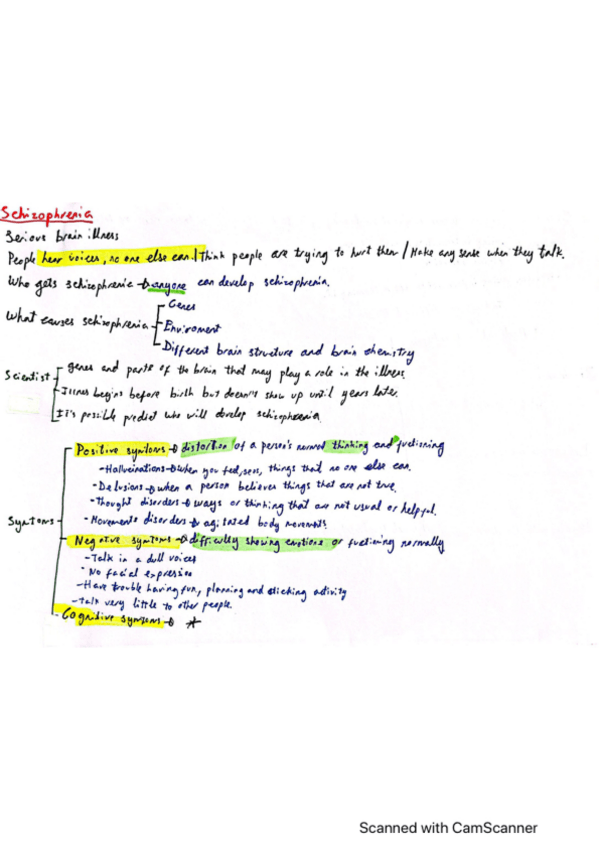 Schizophrenia
Serious brain illness
People hear voices, no one else can./Think people are trying to hurt them / Make any sense when they talk.
Who gets schizophrenic → anyone can develop schizophrenia.
What causes schizophrenia
Genes
Enviroment
Different brain structure and brain chemistry
Scientist
genes and parts of the brain that may play a role in the illness.
Illnes begins before birth but doesn't show up until years later.
It's possible predict who will develop schizophrenia.
Symtoms
Positive symtoms → distortion of a person's normal thinking and fuctioning
-Halluxinations → when you feel, sees, things that no one else can.
-Delusions → when a person believes things that are not true.
-Thought disorders → ways or thinking that are not usual or helpful.
-Movements disorders → agitated body movements.
Negative symtoms → difficulty showing emotions or fuctioning normally
-Talk in a dull voices
-No facial expression
-Have trouble having fun, planning and sticking activity
-talk very little to other people.
-Cognitive symtoms → *
Scanned with CamScanner